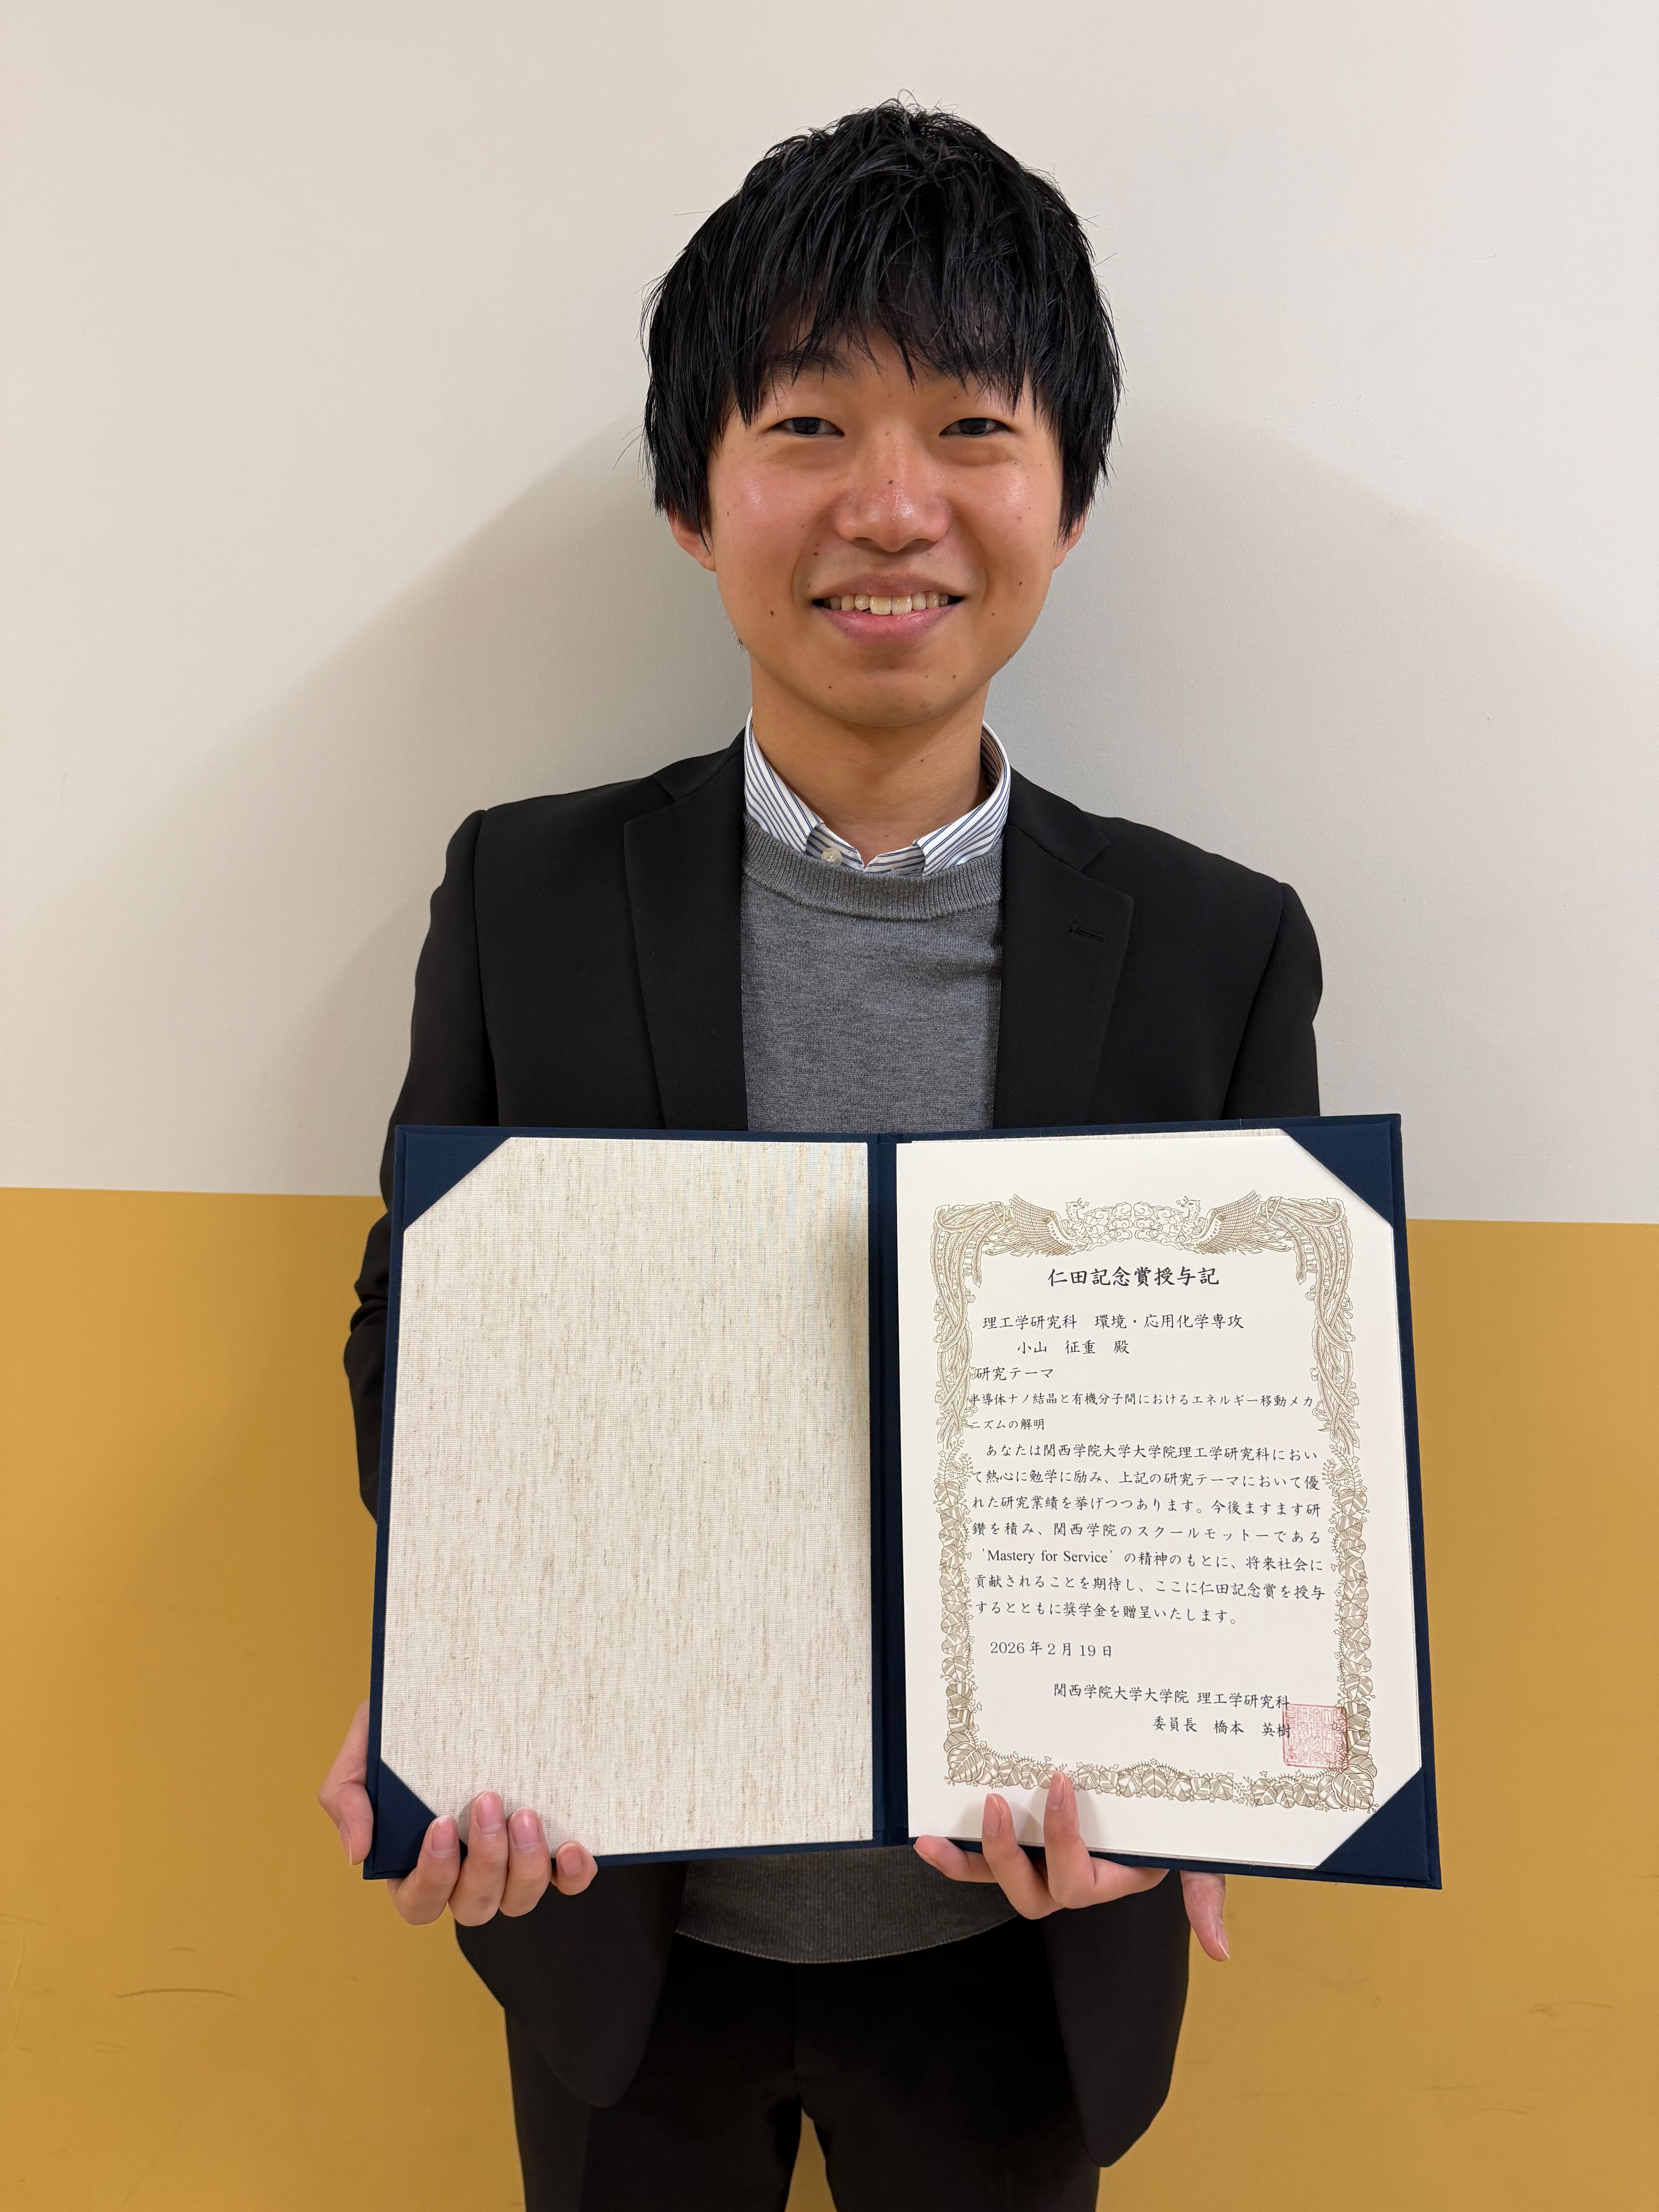 仁田記念賞授与記
理工学研究科　環境・応用化学専攻
小山　征重　殿
研究テーマ
半導体ナノ結晶と有機分子間におけるエネルギー移動メカ
ニズムの解明
あなたは関西学院大学大学院理工学研究科におい
て熱心に勉学に励み、上記の研究テーマにおいて優
れた研究業績を挙げつつあります。今後ますます研
鑽を積み、関西学院のスクールモットーである
‘Mastery for Service’ の精神のもとに、将来社会に
貢献されることを期待し、ここに仁田記念賞を授与
するとともに奨学金を贈呈いたします。
2026年2月19日
関西学院大学大学院 理工学研究科
委員長　橋本　英樹